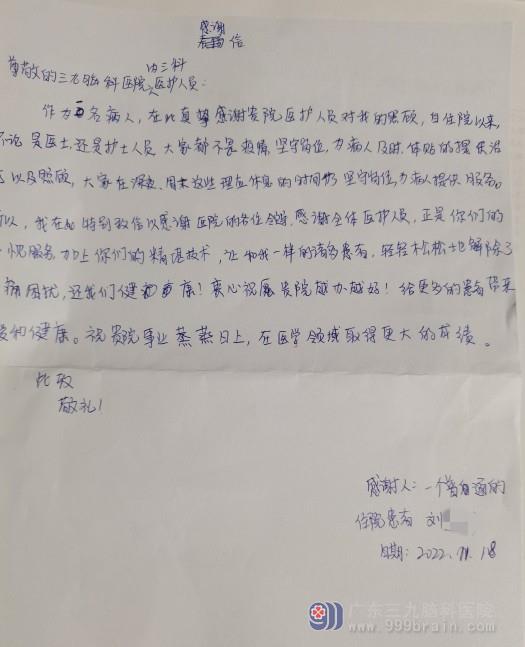 感谢
信
内三科
尊敬的三九脑科医院医护人员:
作为一名病人,在此真挚感谢贵院医护人员对我的照顾,自住院以来,
不论是医生,还是护士人员大家都不畏疫情,坚守岗位,为病人及时、体贴的提供治
以及照顾,大家在深夜、周末这些理应休息的时间扔坚守岗位,为病人提供服务。
以,我在此特别致信以感谢医院的各位领导,感谢全体医护人员,正是你们的
服务加上你们的精湛技术,让和我一样的诸多患者,轻轻松松地解除了
病困扰,还我们健康!衷心祝愿贵院越办越好!给更多的患者带来
和健康。祝贵院事业蒸蒸日上,在医学领域取得更大的成绩。
此致
敬礼!
感谢人:一个普通的
住院患者 刘
日期:2022.11.18
广东三九脑科医院
www.999brain.com